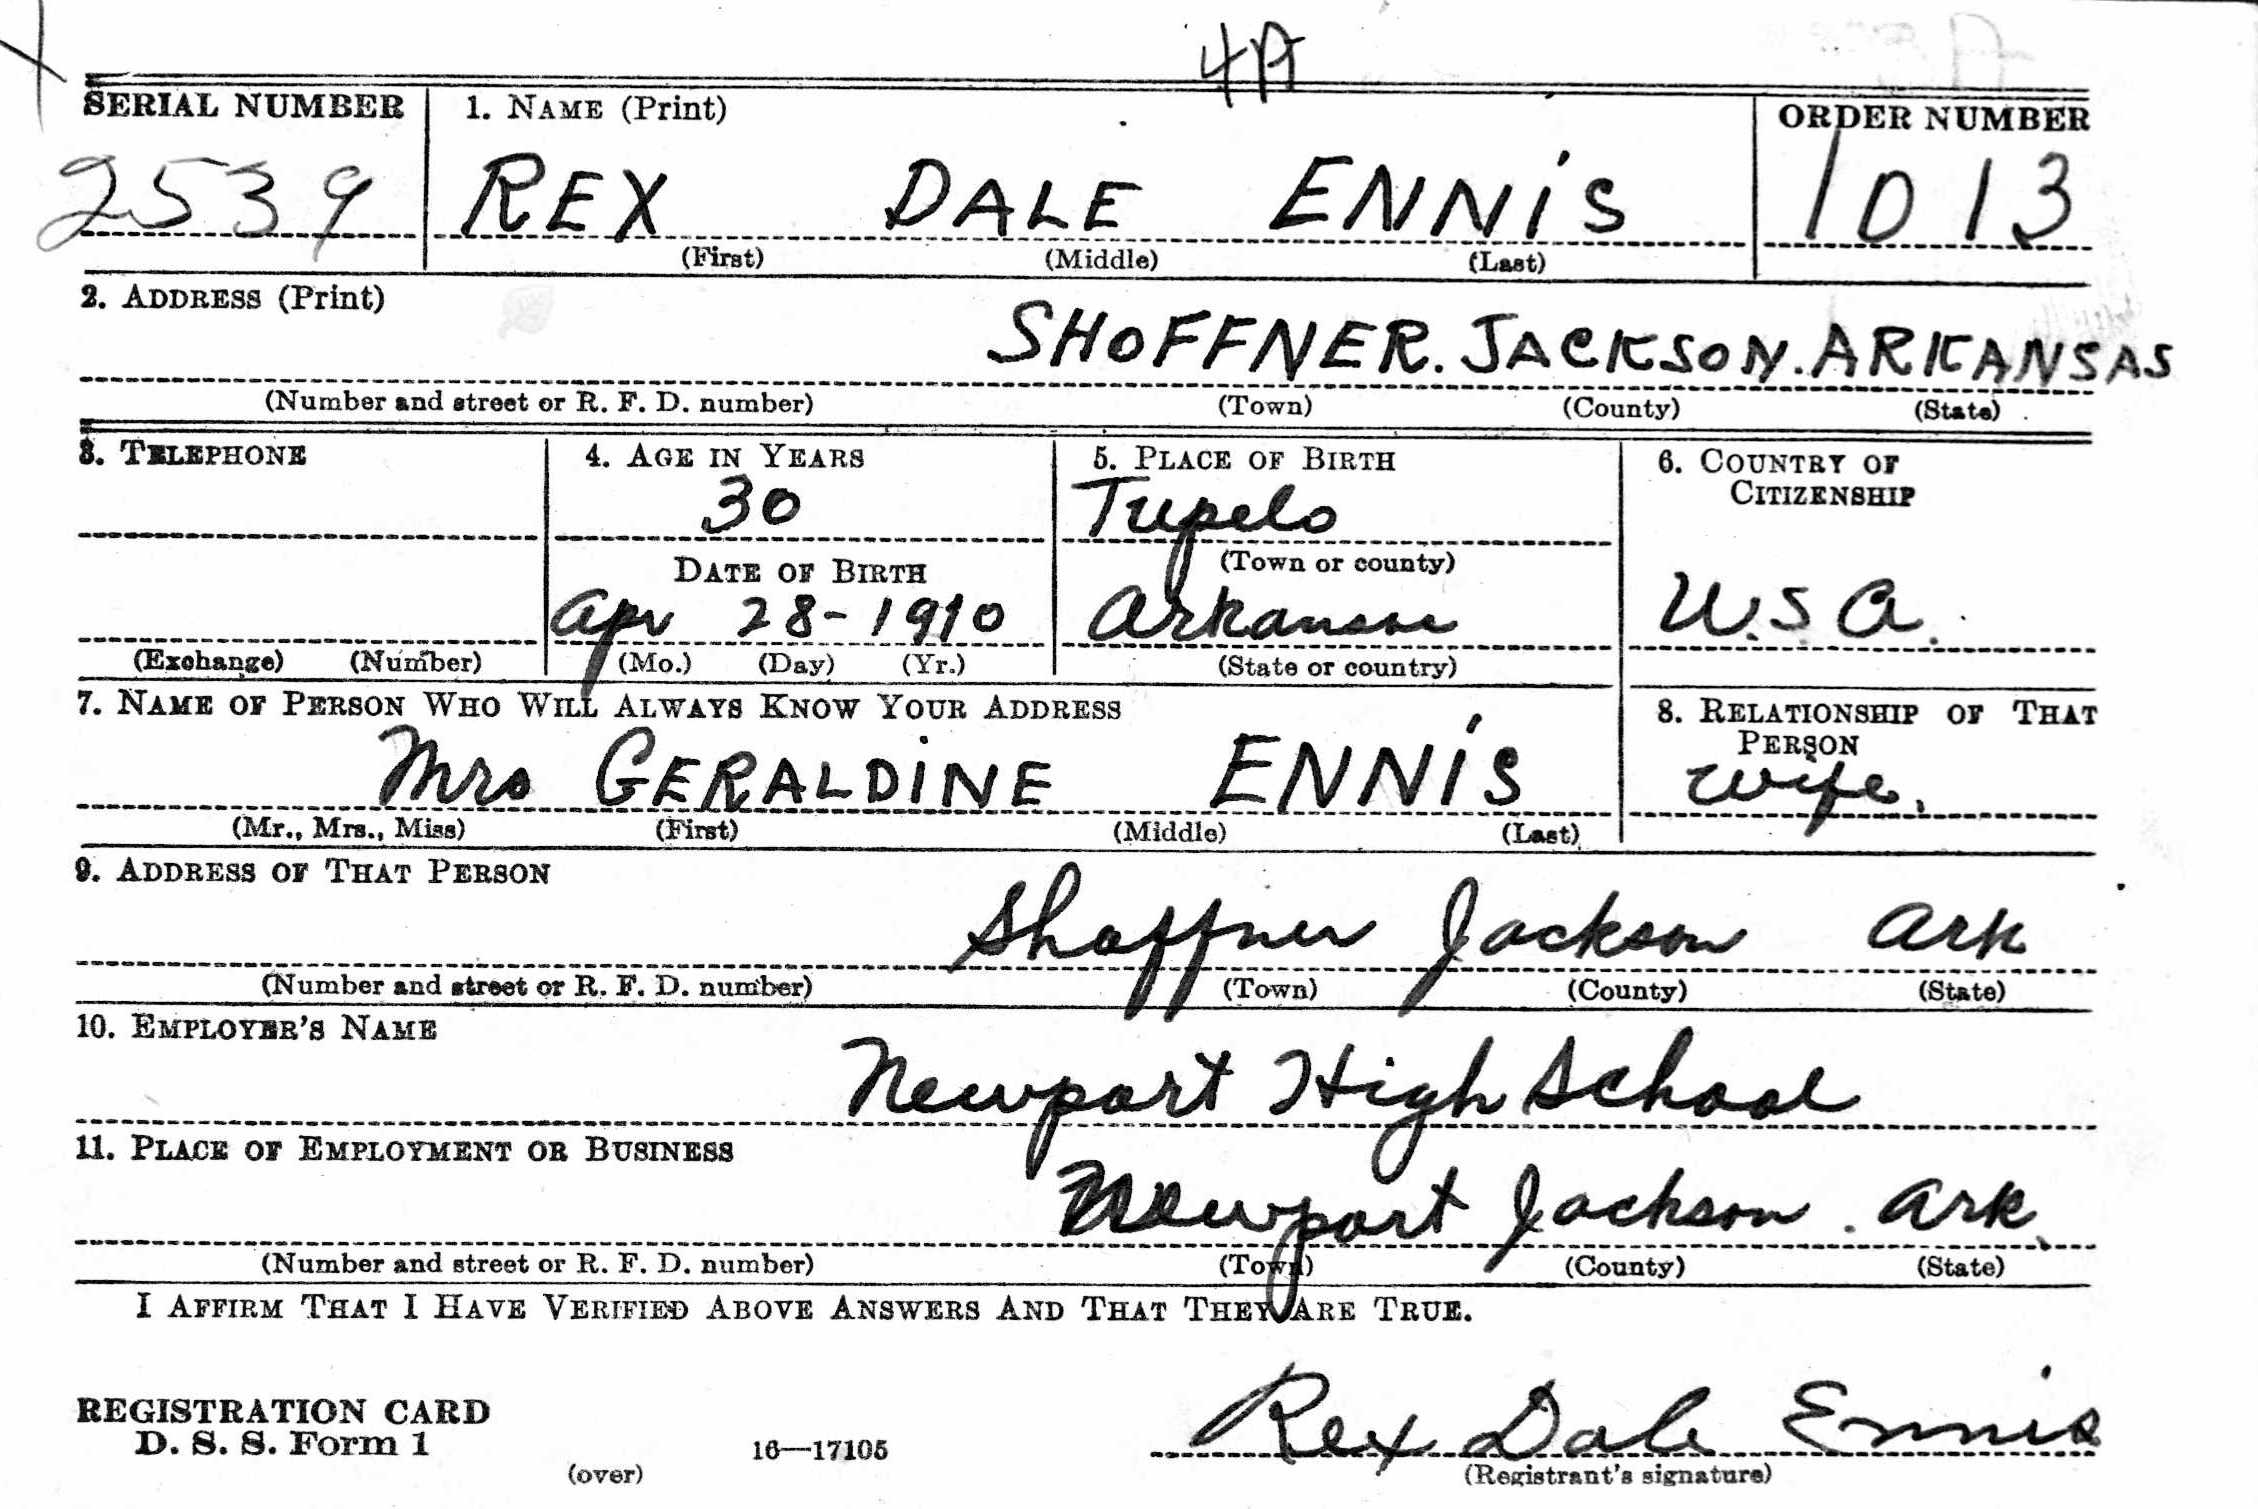 4A
SERIAL NUMBER 1. NAME (Print) ORDER NUMBER
2539 REX DALE ENNIS 1013
(First) (Middle) (Last)
2. ADDRESS (Print)
SHOFFNER. JACKSON. ARKANSAS
(Number and street or R. F. D. number) (Town) (County) (State)
3. TELEPHONE 4. AGE IN YEARS 5. PLACE OF BIRTH 6. COUNTRY OF
CITIZENSHIP
30 Tupelo
(Town or county)
DATE OF BIRTH
Apr 28-1910 Arkansas U.S.A.
(Exchange) (Number) (Mo.) (Day) (Yr.) (State or country)
7. NAME OF PERSON WHO WILL ALWAYS KNOW YOUR ADDRESS 8. RELATIONSHIP OF THAT
PERSON
Mrs GERALDINE ENNIS wife.
(Mr., Mrs., Miss) (First) (Middle) (Last)
9. ADDRESS OF THAT PERSON
Shoffner Jackson Ark
(Number and street or R. F. D. number) (Town) (County) (State)
10. EMPLOYER'S NAME
Newport High School
11. PLACE OF EMPLOYMENT OR BUSINESS
Newport Jackson. Ark.
(Number and street or R. F. D. number) (Town) (County) (State)
I AFFIRM THAT I HAVE VERIFIED ABOVE ANSWERS AND THAT THEY ARE TRUE.
REGISTRATION CARD
D. S. S. Form 1 16—17105 Rex Dale Ennis
(over) (Registrant's signature)